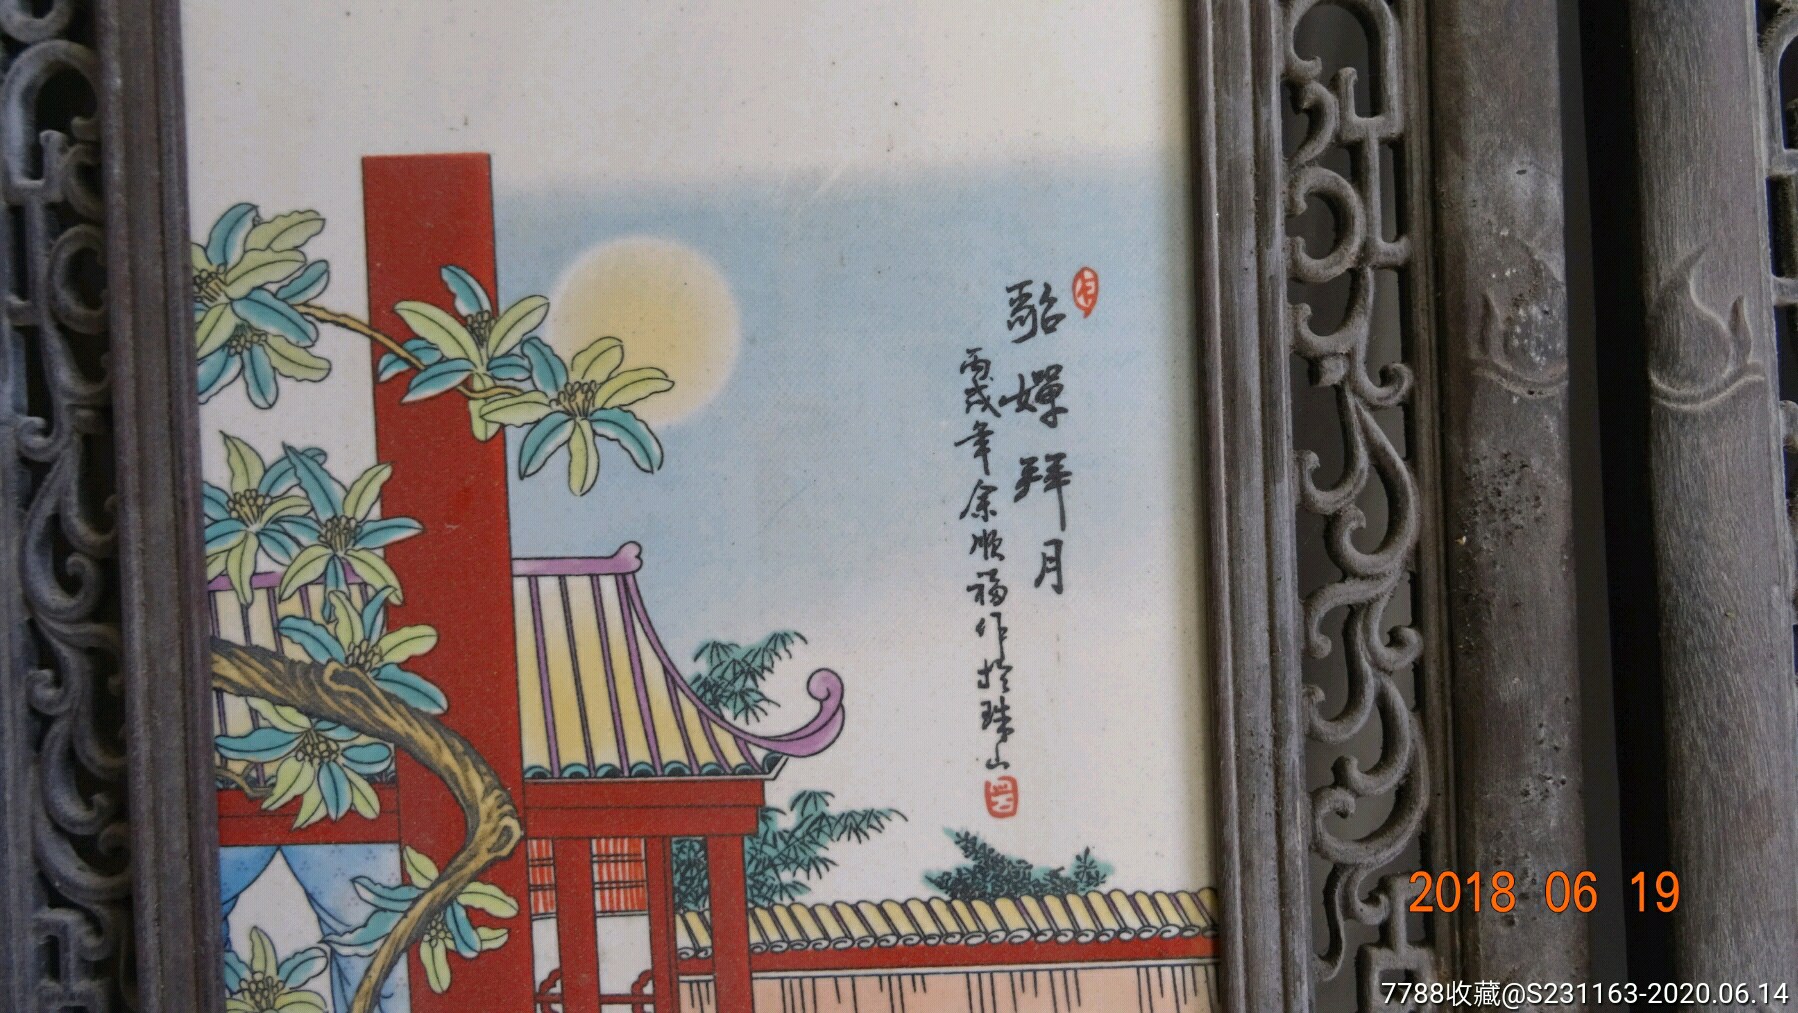 貂嬋拜月
丙戌年余順福作於珠山
2018 06 19
7788收藏@S231163-2020.06.14